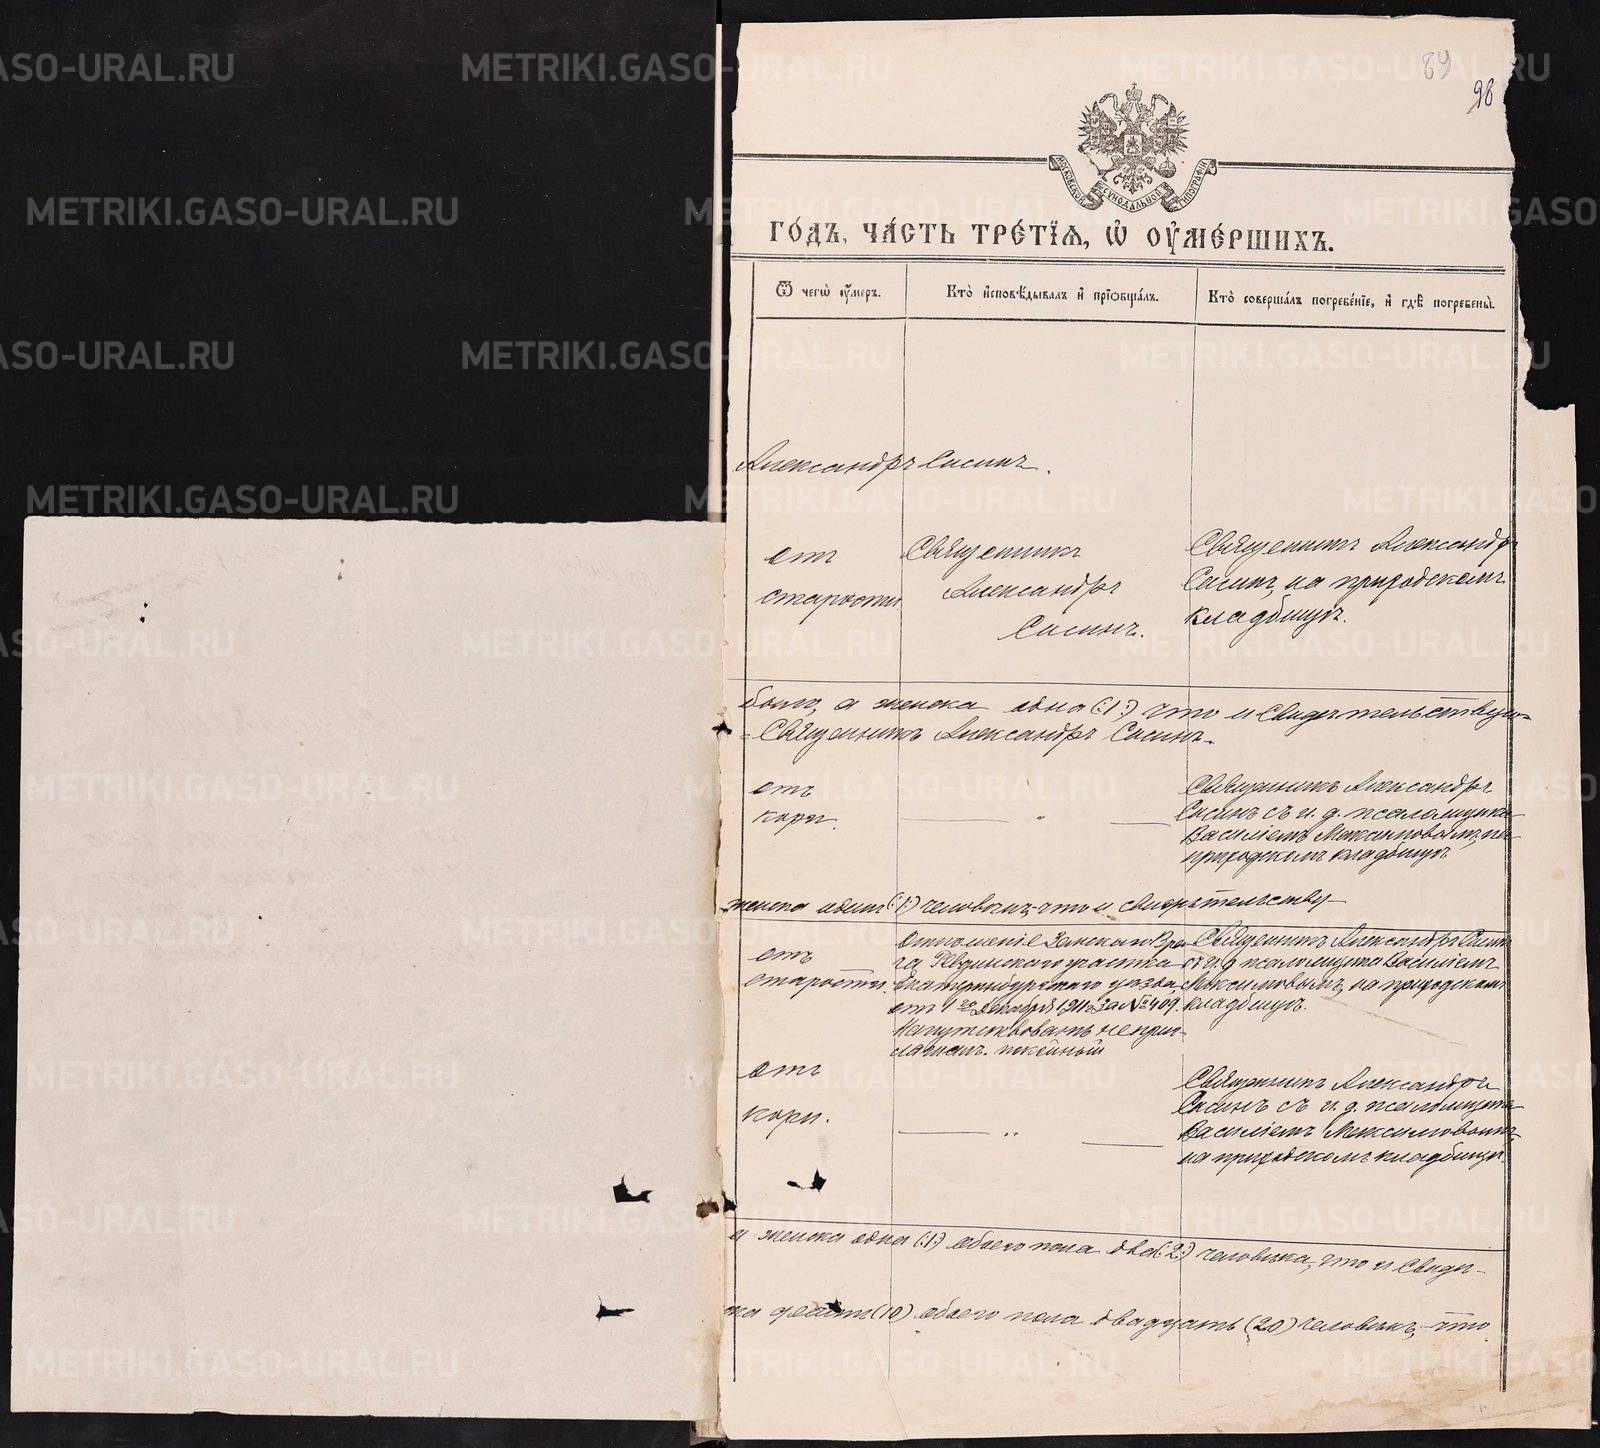 89
98
МОСКОВСКОЙ СѴНОДАЛЬНОЙ ТИПОГРАФІИ
ГО́ДЪ, ЧА́СТЬ ТРЕ́ТІѦ, Ѡ ОУ҆МЕ́РШИХЪ.
Ѿ чегѡ̀ ᲂу҆́меръ.
Кто̀ и҆сповѣ́дывалъ и҆ прїѡбща́лъ.
Кто̀ соверша́лъ погребе́нїе, и҆ гдѣ̀ погребены̀.
Александръ Сисинъ.
отъ
старости
Священникъ
Александръ
Сисинъ.
Священникъ Александръ
Сисинъ, на приходскомъ
кладбищѣ.
а женска одна (:1:) что и свидѣтельствую
Священникъ Александръ Сисинъ.
отъ
кори.
Священникъ Александръ
Сисинъ съ и. д. псаломщика
Василіемъ Максимовымъ, на
приходскомъ кладбищѣ
женска одинъ (:1:) человѣкъ, что и свидѣтельству
отъ
старости.
Отношеніе Земскаго Вра-
ча Ревдинскаго участка
Екатеринбургскаго уѣзда,
отъ 1го Декабря 1911 за № 409.
Напутствовать не при-
глашали. покойный
Священникъ Александръ Сисинъ
съ и. д. псаломщика Василіемъ
Максимовымъ, на приходскомъ
кладбищѣ.
отъ
кори.
Священникъ Александръ
Сисинъ съ и. д. псаломщика
Василіемъ Максимовымъ,
на приходскомъ кладбищѣ.
и женска одна (:1:) обоего пола два (:2:) человѣка, что и Свидѣ-
ка десять (10) обоего пола двадцать (20) человѣкъ, что
METRIKI.GASO-URAL.RU